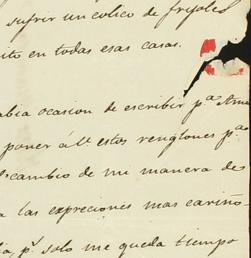 sufrir un colico de frijoles
ito en todas esas casas.
abia ocasion de escribir pª Ama
poner á Vª estos renglones pª
scambio de mi manera de
a las expreciones mas cariño-
ia, pʳ solo me queda tiempo